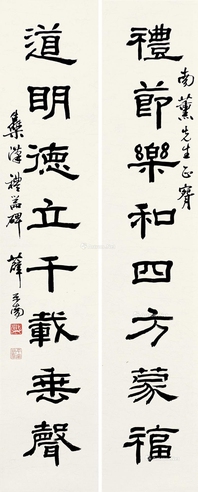 禮節樂和四方蒙福
南薰先生正腕
道明德立千載垂聲
集漢禮器碑 薛平南